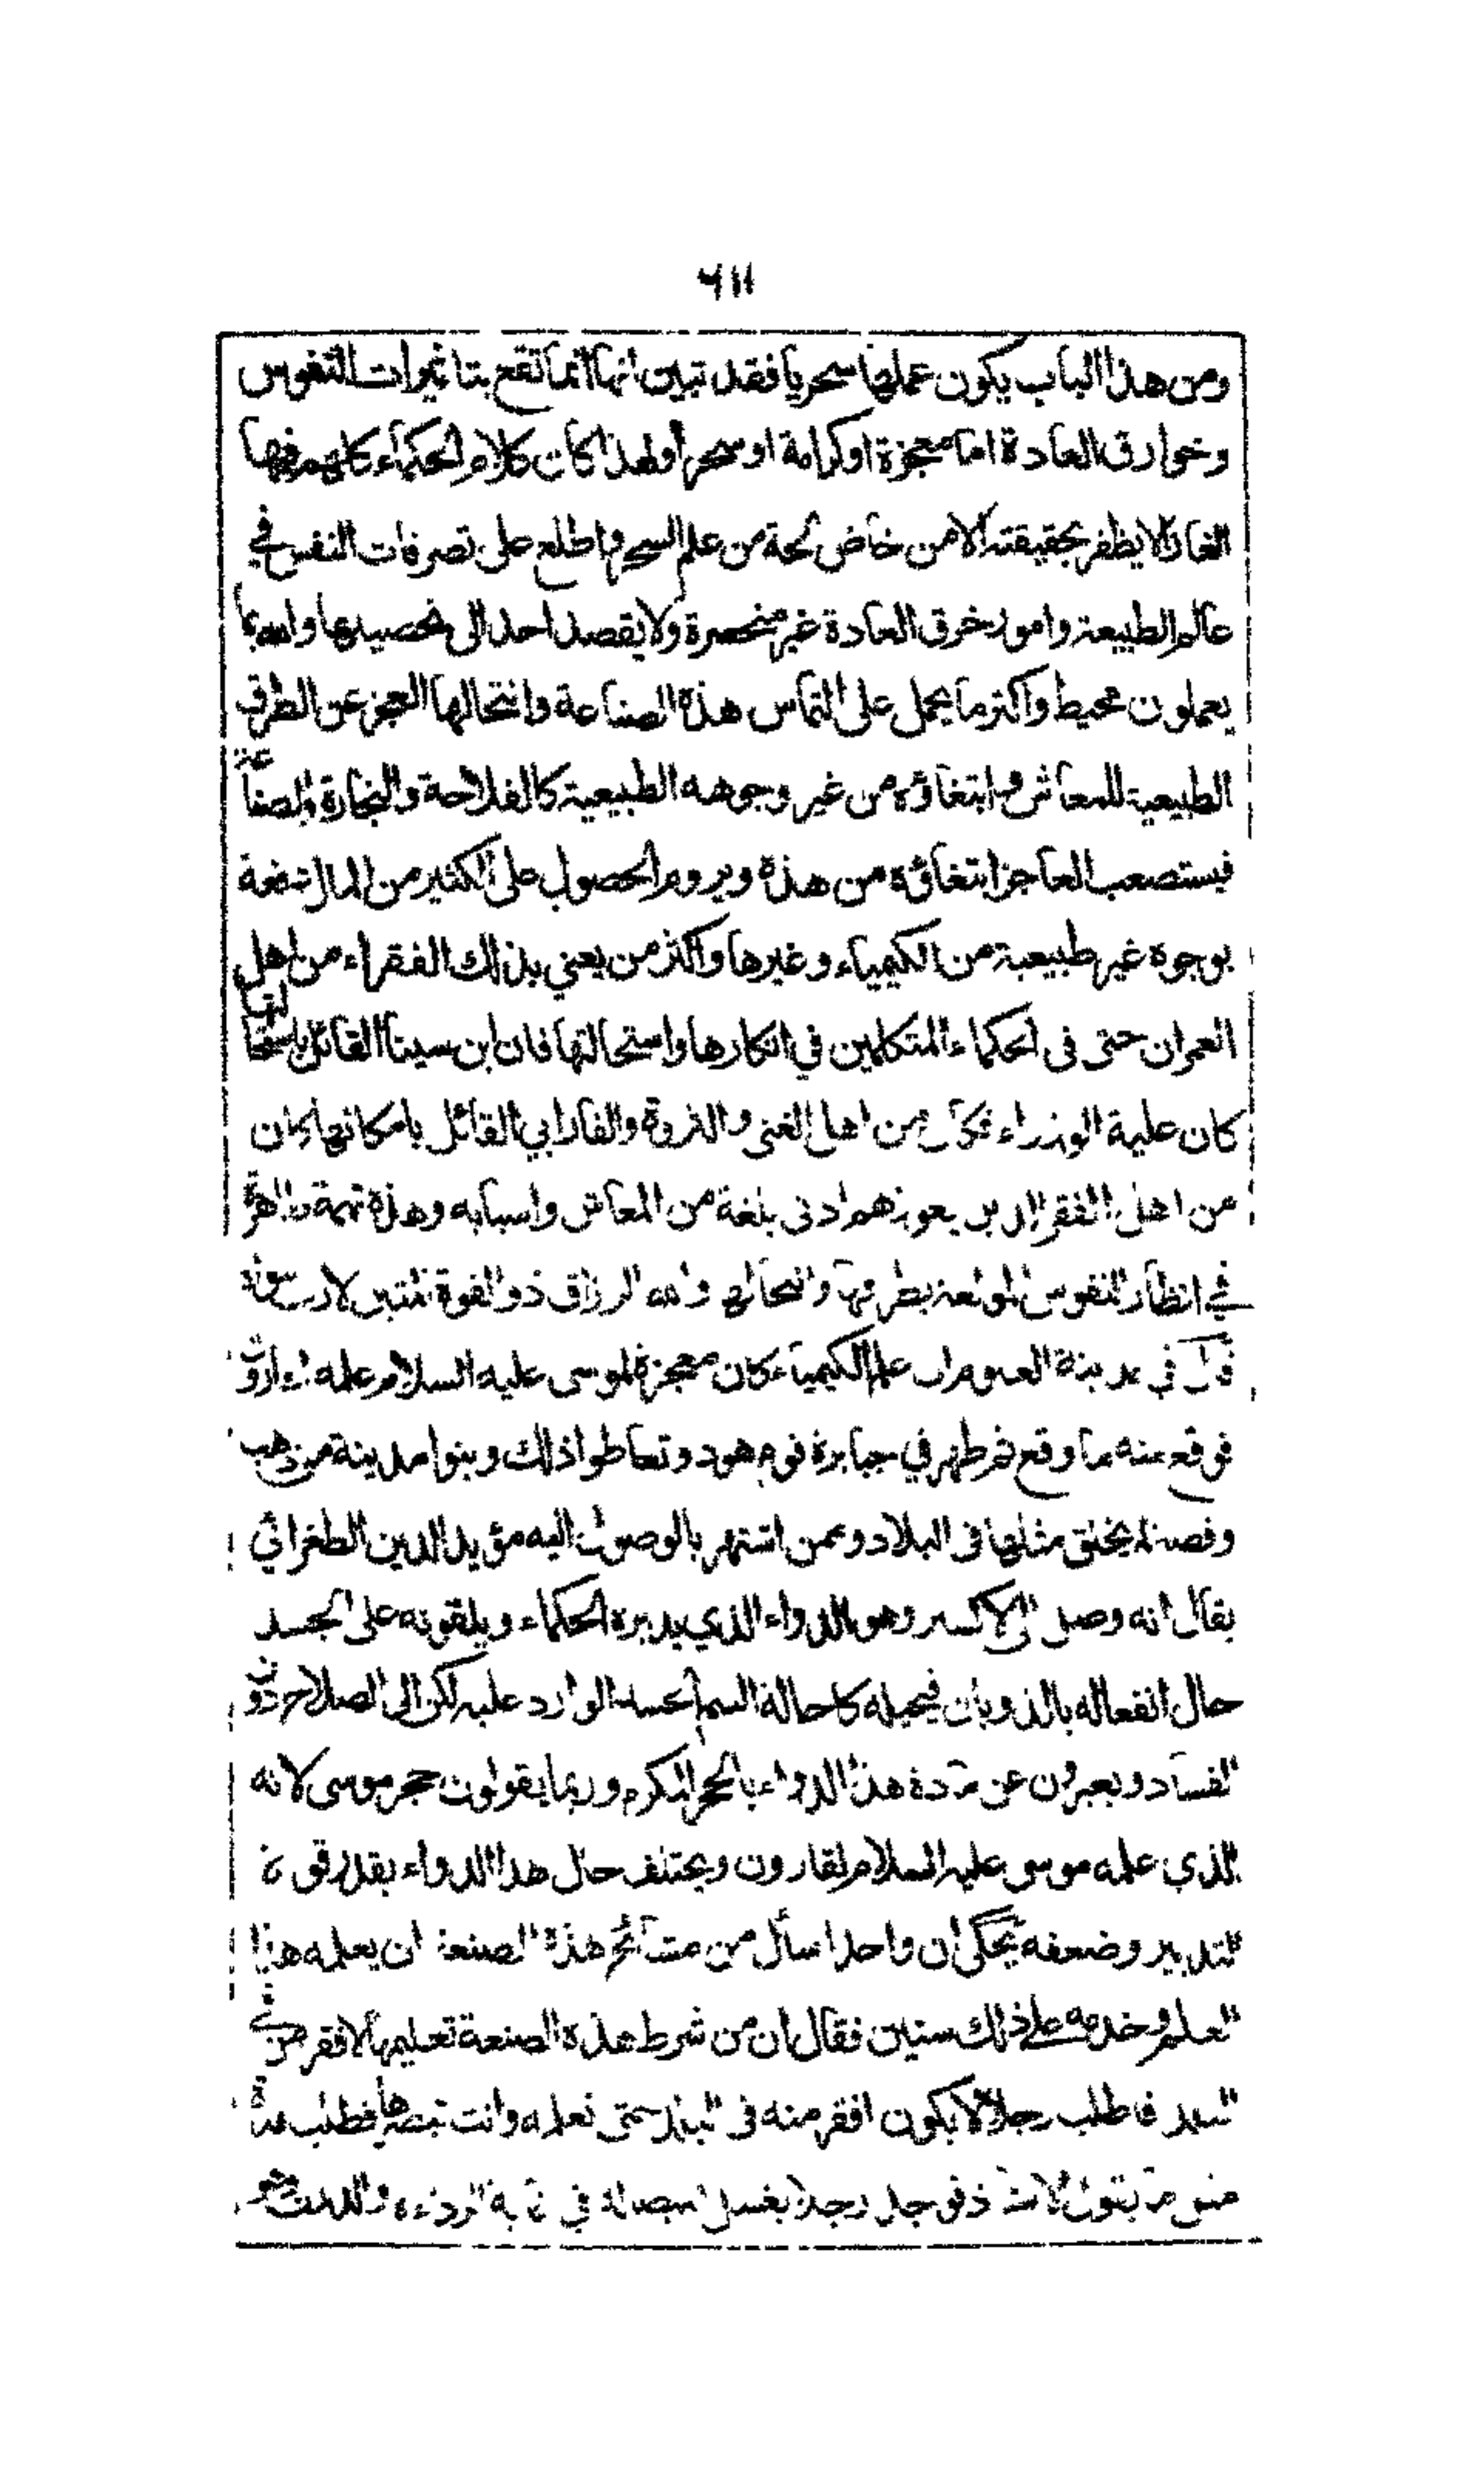 ٦١١
ومن هذا الباب يكون عملها سحريا فقد تبين انها انما تقع بتاثيرات النفوس
وخوارق العادة اما معجزة او كرامة او سحرا ولهذا كان كلام الحكماء كلهم فيها
الغازا لا يظفر بحقيقته الا من خاض لجة من علم السحر واطلع على تصرفات النفس في
عالم الطبيعة وامور خرق العادة غير منحصرة ولا يقصد احد الى تحصيلها والله بما
يعملون محيط واكثر ما يحمل على التماس هذه الصناعة وانتحالها العجز عن الطرق
الطبيعية للمعاش وابتغاؤه من غير وجوهه الطبيعية كالفلاحة والتجارة والصناعة
فيستصعب العاجز ابتغاؤه من هذه ويروم الحصول على الكثير من المال دفعة
بوجوه غير طبيعية من الكيمياء وغيرها واكثر من يعني بذلك الفقراء من اهل
العمران حتى فى الحكماء المتكلمين في انكارها واستحالتها فان ابن سينا القائل باستحالتها
كان علية الوزراء فكان من اهل الغنى والثروة والفارابي القائل بامكانها كان
من اهل الفقر الذين يعوزهم ادنى بلغة من المعاش واسبابه وهذه تهمة ظاهرة
في انظار النفوس المولعة بطرقها وانتحالها والله الرزاق ذو القوة المتين لا رب سواه
قال في مدينة العلوم ان علم الكيمياء كان معجزة لموسى عليه السلام علمه لقارون
فوقع منه ما وقع ثم ظهر في جبابرة قوم هود وتعاطوا ذلك وبنوا مدينة من ذهب
وفضة لم يخلق مثلها فى البلاد وممن اشتهر بالوصول اليه مؤيد الدين الطغرائي
يقال انه وصل الى الاكسير وهو الدواء الذي يدبره الحكماء ويلقونه على الجسد
حال انفعاله بالذوبان فيحيله كاحالة السم الجسد الوارد عليه لكن الى الصلاح دون
الفساد ويعبرون عن مادة هذا الدواء بالحجر المكرم وربما يقولون حجر موسى لانه
الذي علمه موسى عليه السلام لقارون ويختلف حال هذا الدواء بقدر قوة
التدبير وضعفه يحكى ان واحدا سأل من مشائخ هذه الصنعة ان يعلمه هذا
العلم وخدمه على ذلك سنين فقال ان من شرط هذه الصنعة تعليمها لافقر من في
البلد فاطلب رجلا لا يكون افقر منه فى البلد حتى نعلمه وانت تبصرها فطلب مدة
مثل ما يقول الاستاذ فوجد رجلا يغسل قميصا له في غاية الرداءة والدنس وهو